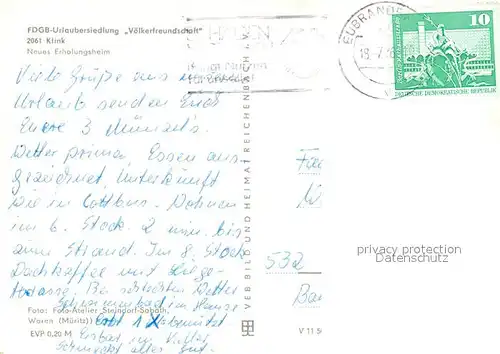 FDGB-Urlaubersiedlung „Völkerfreundschaft"
2061 Klink
Neues Erholungsheim
Viele Grüße aus unserem
Urlaub senden Euch
Euere 3 Münzels.
Wetter prima, Essen aus-
gezeichnet, Unterkunft
wie in Cottbus. Wohnen
im 6. Stock. 2 min. bis
zum Strand. Im 8. Stock
Dachkaffee mit Liege-
terasse. Bei schlechtem Wetter
Schwimmbad im Hause
Foto: Foto-Atelier Steindorf-Sabath,
Waren (Müritz)
erst 1 X benutzt
EVP 0,20 M
Eisbar im Keller
schmeckt alles gut.
VEB BILD UND HEIMAT REICHENBACH I. V.
V 11 5
NEUBRANDEN
18.7.
10
DEUTSCHE DEMOKRATISCHE REPUBLIK
Fa
532
Ba
privacy protection
Datenschutz